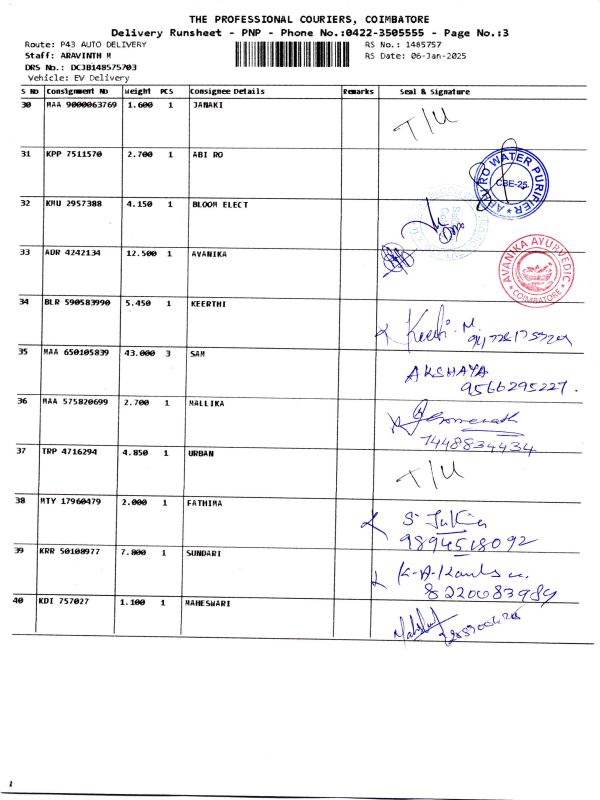 THE PROFESSIONAL COURIERS, COIMBATORE
Delivery Runsheet - PNP - Phone No.:0422-3505555 - Page No.:3
Route: P43 AUTO DELIVERY RS No.: 1485757
Staff: ARAVINTH M RS Date: 06-Jan-2025
DRS No.: DCJB148575703
Vehicle: EV Delivery
S No Consignment No Weight PCS Consignee Details Remarks Seal & Signature
30 MAA 9000063769 1.600 1 JANAKI
T/U
31 KPP 7511570 2.700 1 ABI RO
ABI RO WATER PURIFIER
CBE-25
32 KMU 2957388 4.150 1 BLOOM ELECT
33 ADR 4242134 12.500 1 AVANIKA
AVANIKA AYURVEDIC
COIMBATORE
34 BLR 590583990 5.450 1 KEERTHI
35 MAA 650105839 43.000 3 SAM
AKSHAYA
9566295227.
36 MAA 575820699 2.700 1 MALLIKA
7448834434
37 TRP 4716294 4.850 1 URBAN
T/U
38 MTY 17960479 2.000 1 FATHIMA
9894518092
39 KRR 50108977 7.800 1 SUNDARI
8220083989
40 KDI 757027 1.100 1 MAHESWARI
1